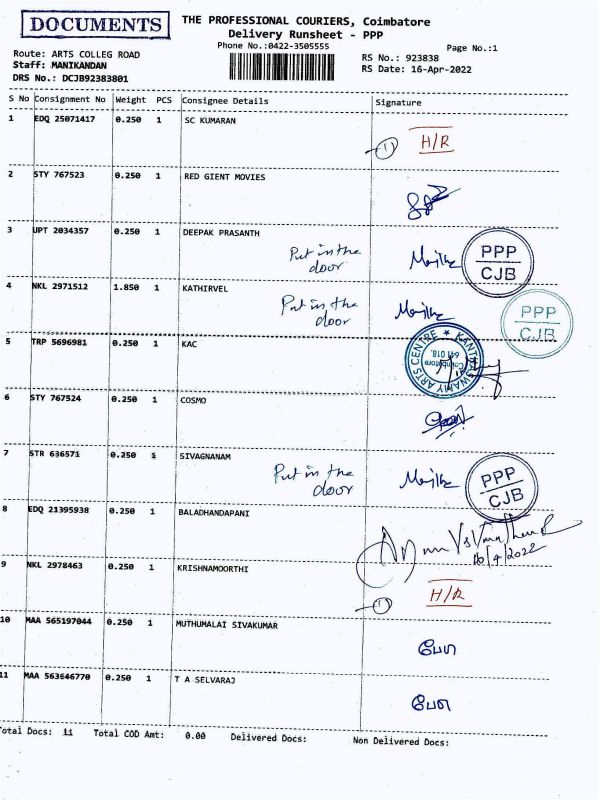 DOCUMENTS
THE PROFESSIONAL COURIERS, Coimbatore
Delivery Runsheet - PPP
Phone No.:0422-3505555
Page No.:1
Route: ARTS COLLEG ROAD
Staff: MANIKANDAN
DRS No.: DCJB92383801
RS No.: 923838
RS Date: 16-Apr-2022
S No Consignment No Weight PCS Consignee Details Signature
1 EDQ 25071417 0.250 1 SC KUMARAN
(1) H/R
2 STY 767523 0.250 1 RED GIENT MOVIES
3 UPT 2034357 0.250 1 DEEPAK PRASANTH
Put in the
door
PPP
CJB
4 NKL 2971512 1.850 1 KATHIRVEL
Put in the
door
PPP
CJB
5 TRP 5696981 0.250 1 KAC
KANTHASWAMY ARTS CENTRE
Coimbatore
641 018.
6 STY 767524 0.250 1 COSMO
7 STR 636571 0.250 1 SIVAGNANAM
Put in the
door
PPP
CJB
8 EDQ 21395938 0.250 1 BALADHANDAPANI
16/4/2022
9 NKL 2978463 0.250 1 KRISHNAMOORTHI
(1) H/R
10 MAA 565197044 0.250 1 MUTHUMALAI SIVAKUMAR
11 MAA 563646770 0.250 1 T A SELVARAJ
Total Docs: 11 Total COD Amt: 0.00 Delivered Docs: Non Delivered Docs: